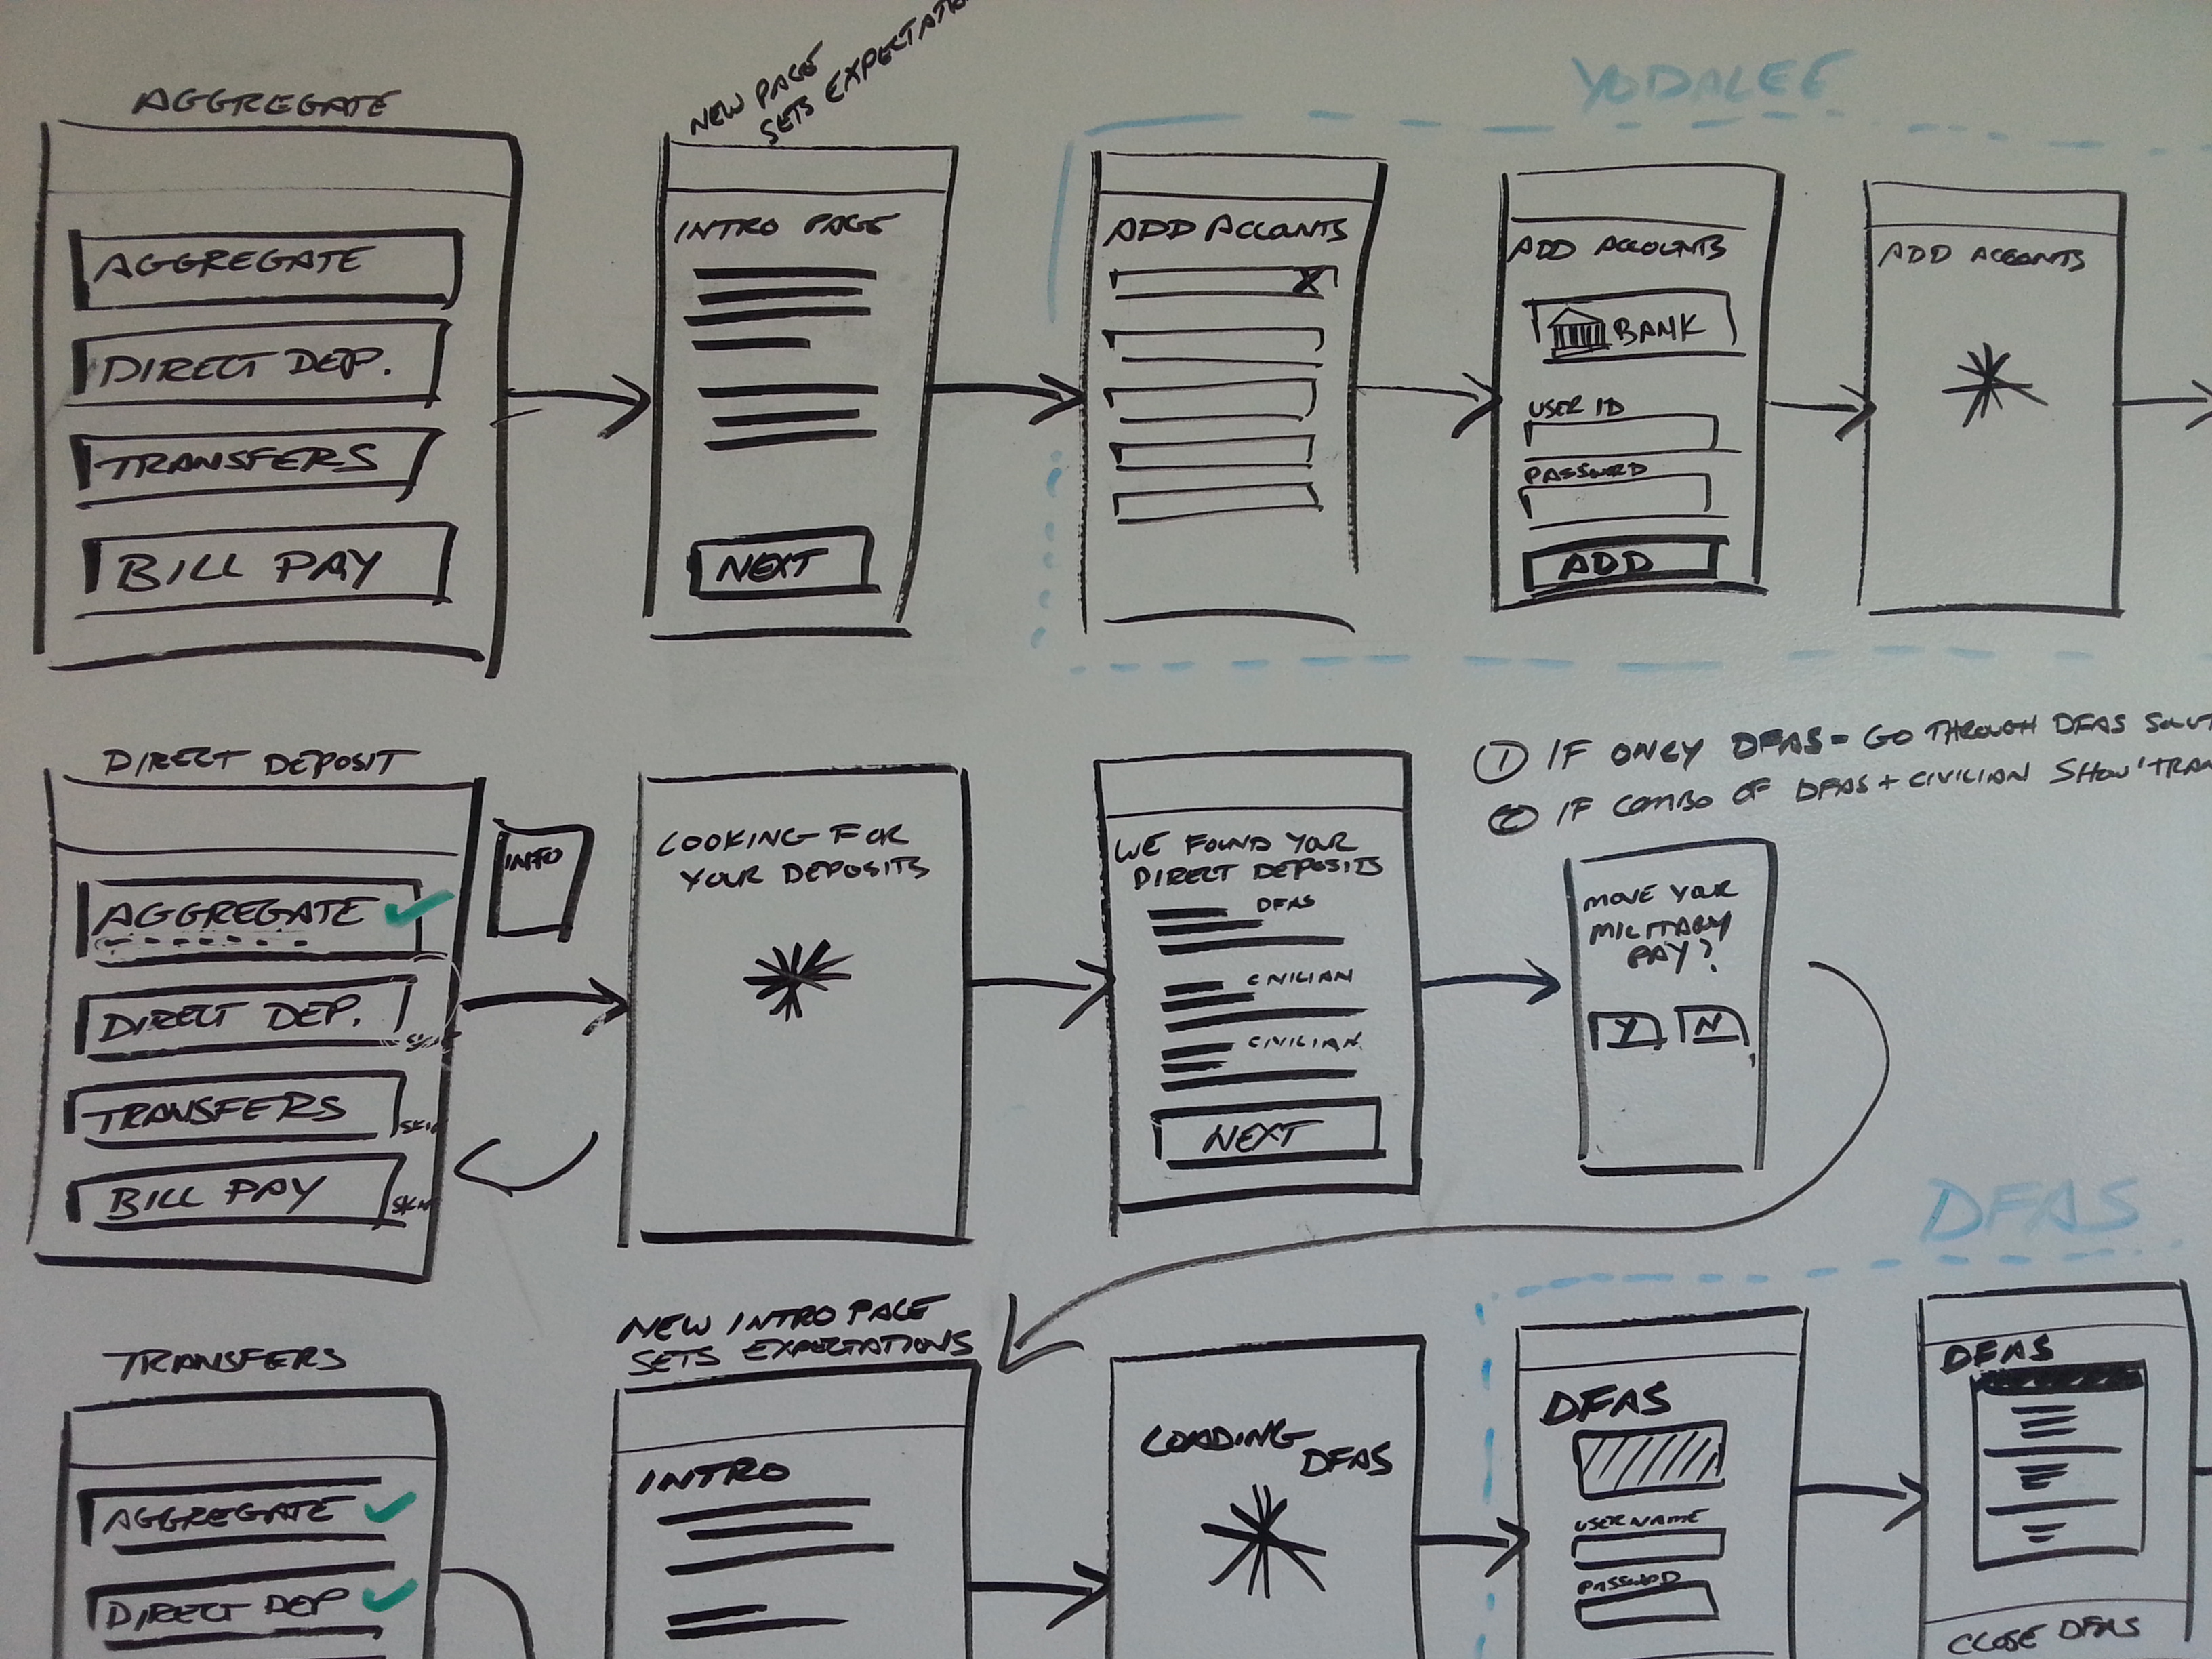 AGGREGATE
NEW PAGE
SETS EXPECTATION
YODALEE
AGGREGATE
DIRECT DEP.
TRANSFERS
BILL PAY
INTRO PAGE
NEXT
ADD ACCONTS
ADD ACCOUNTS
BANK
USER ID
PASSWORD
ADD
ADD ACCONTS
DIRECT DEPOSIT
AGGREGATE
DIRECT DEP.
TRANSFERS
BILL PAY
INFO
LOOKING FOR
YOUR DEPOSITS
WE FOUND YOUR
DIRECT DEPOSITS
DFAS
CIVILIAN
CIVILIAN
NEXT
① IF ONLY DFAS = GO THROUGH DFAS
② IF COMBO OF DFAS + CIVILIAN SHOW
MOVE YOUR
MILITARY
PAY?
Y N
DFAS
TRANSFERS
AGGREGATE
DIRECT DEP
NEW INTRO PAGE
SETS EXPECTATIONS
INTRO
LOADING
DFAS
DFAS
USERNAME
PASSWORD
DFAS
CLOSE DFAS